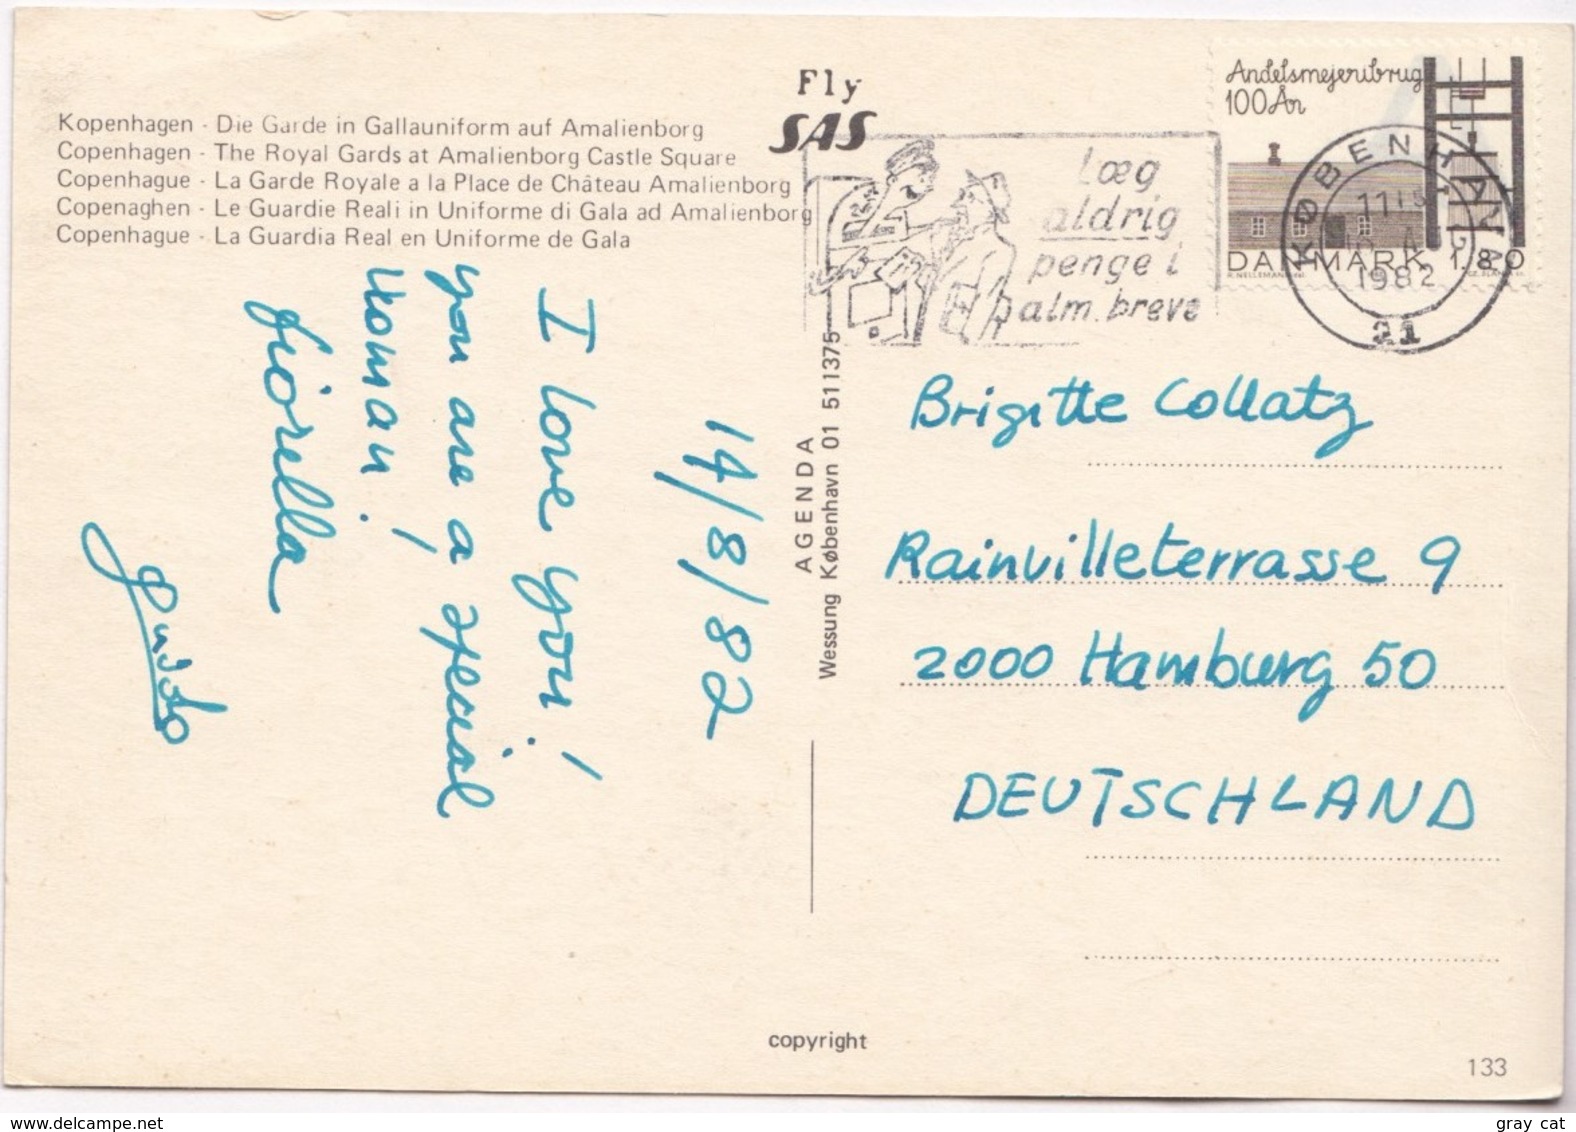 Fly
SAS
Kopenhagen - Die Garde in Gallauniform auf Amalienborg
Copenhagen - The Royal Gards at Amalienborg Castle Square
Copenhague - La Garde Royale a la Place de Château Amalienborg
Copenaghen - Le Guardie Reali in Uniforme di Gala ad Amalienborg
Copenhague - La Guardia Real en Uniforme de Gala
Læg
aldrig
penge i
alm. breve
Andelsmejeribrug
100 År
DANMARK 180
KØBENHAVN
1982
21
14/8/82
I love you!
you are a special
woman!
Fiorella
Guido
AGENDA
Wessung København 01 511375
Brigitte Collatz
Rainvilleterrasse 9
2000 Hamburg 50
DEUTSCHLAND
copyright
133
www.delcampe.net
gray cat